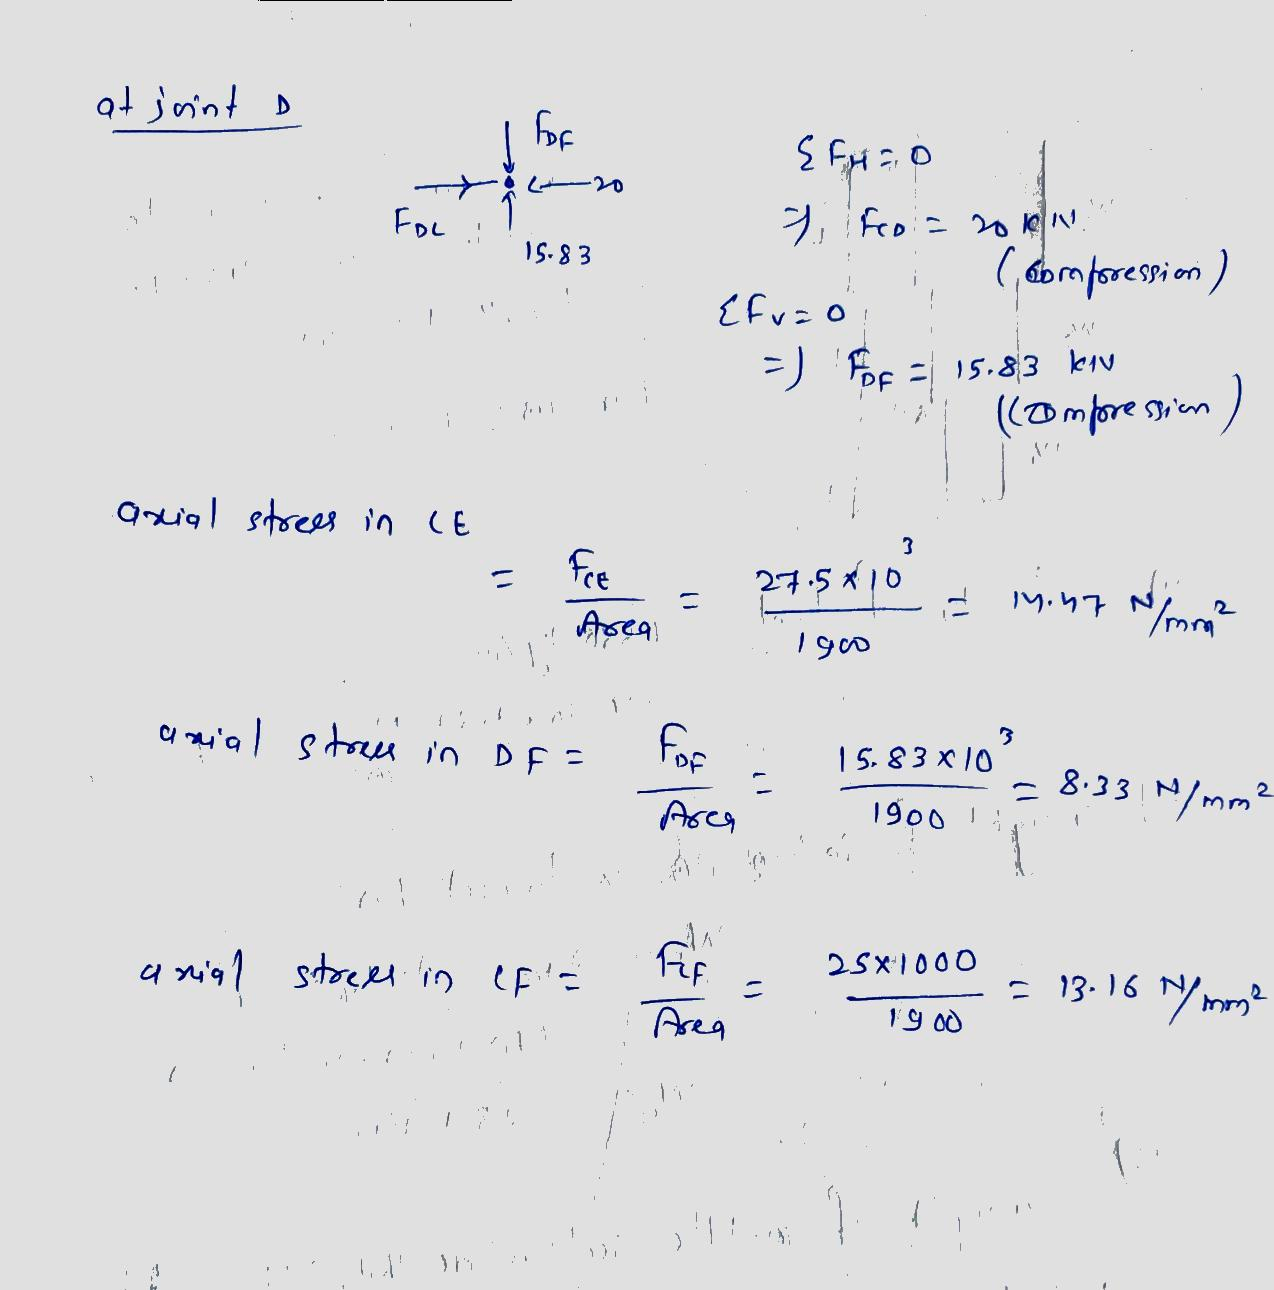 at joint D
FDF
20
FDC
15.83
ΣFH = 0
=> FCD = 20 kN
(Compression)
ΣFv = 0
=> FDF = 15.83 kN
(Compression)
axial stress in CE
= FCE / Area = 27.5 × 10³ / 1900 = 14.47 N/mm²
axial stress in DF = FDF / Area = 15.83 × 10³ / 1900 = 8.33 N/mm²
axial stress in CF = FCF / Area = 25×1000 / 1900 = 13.16 N/mm²